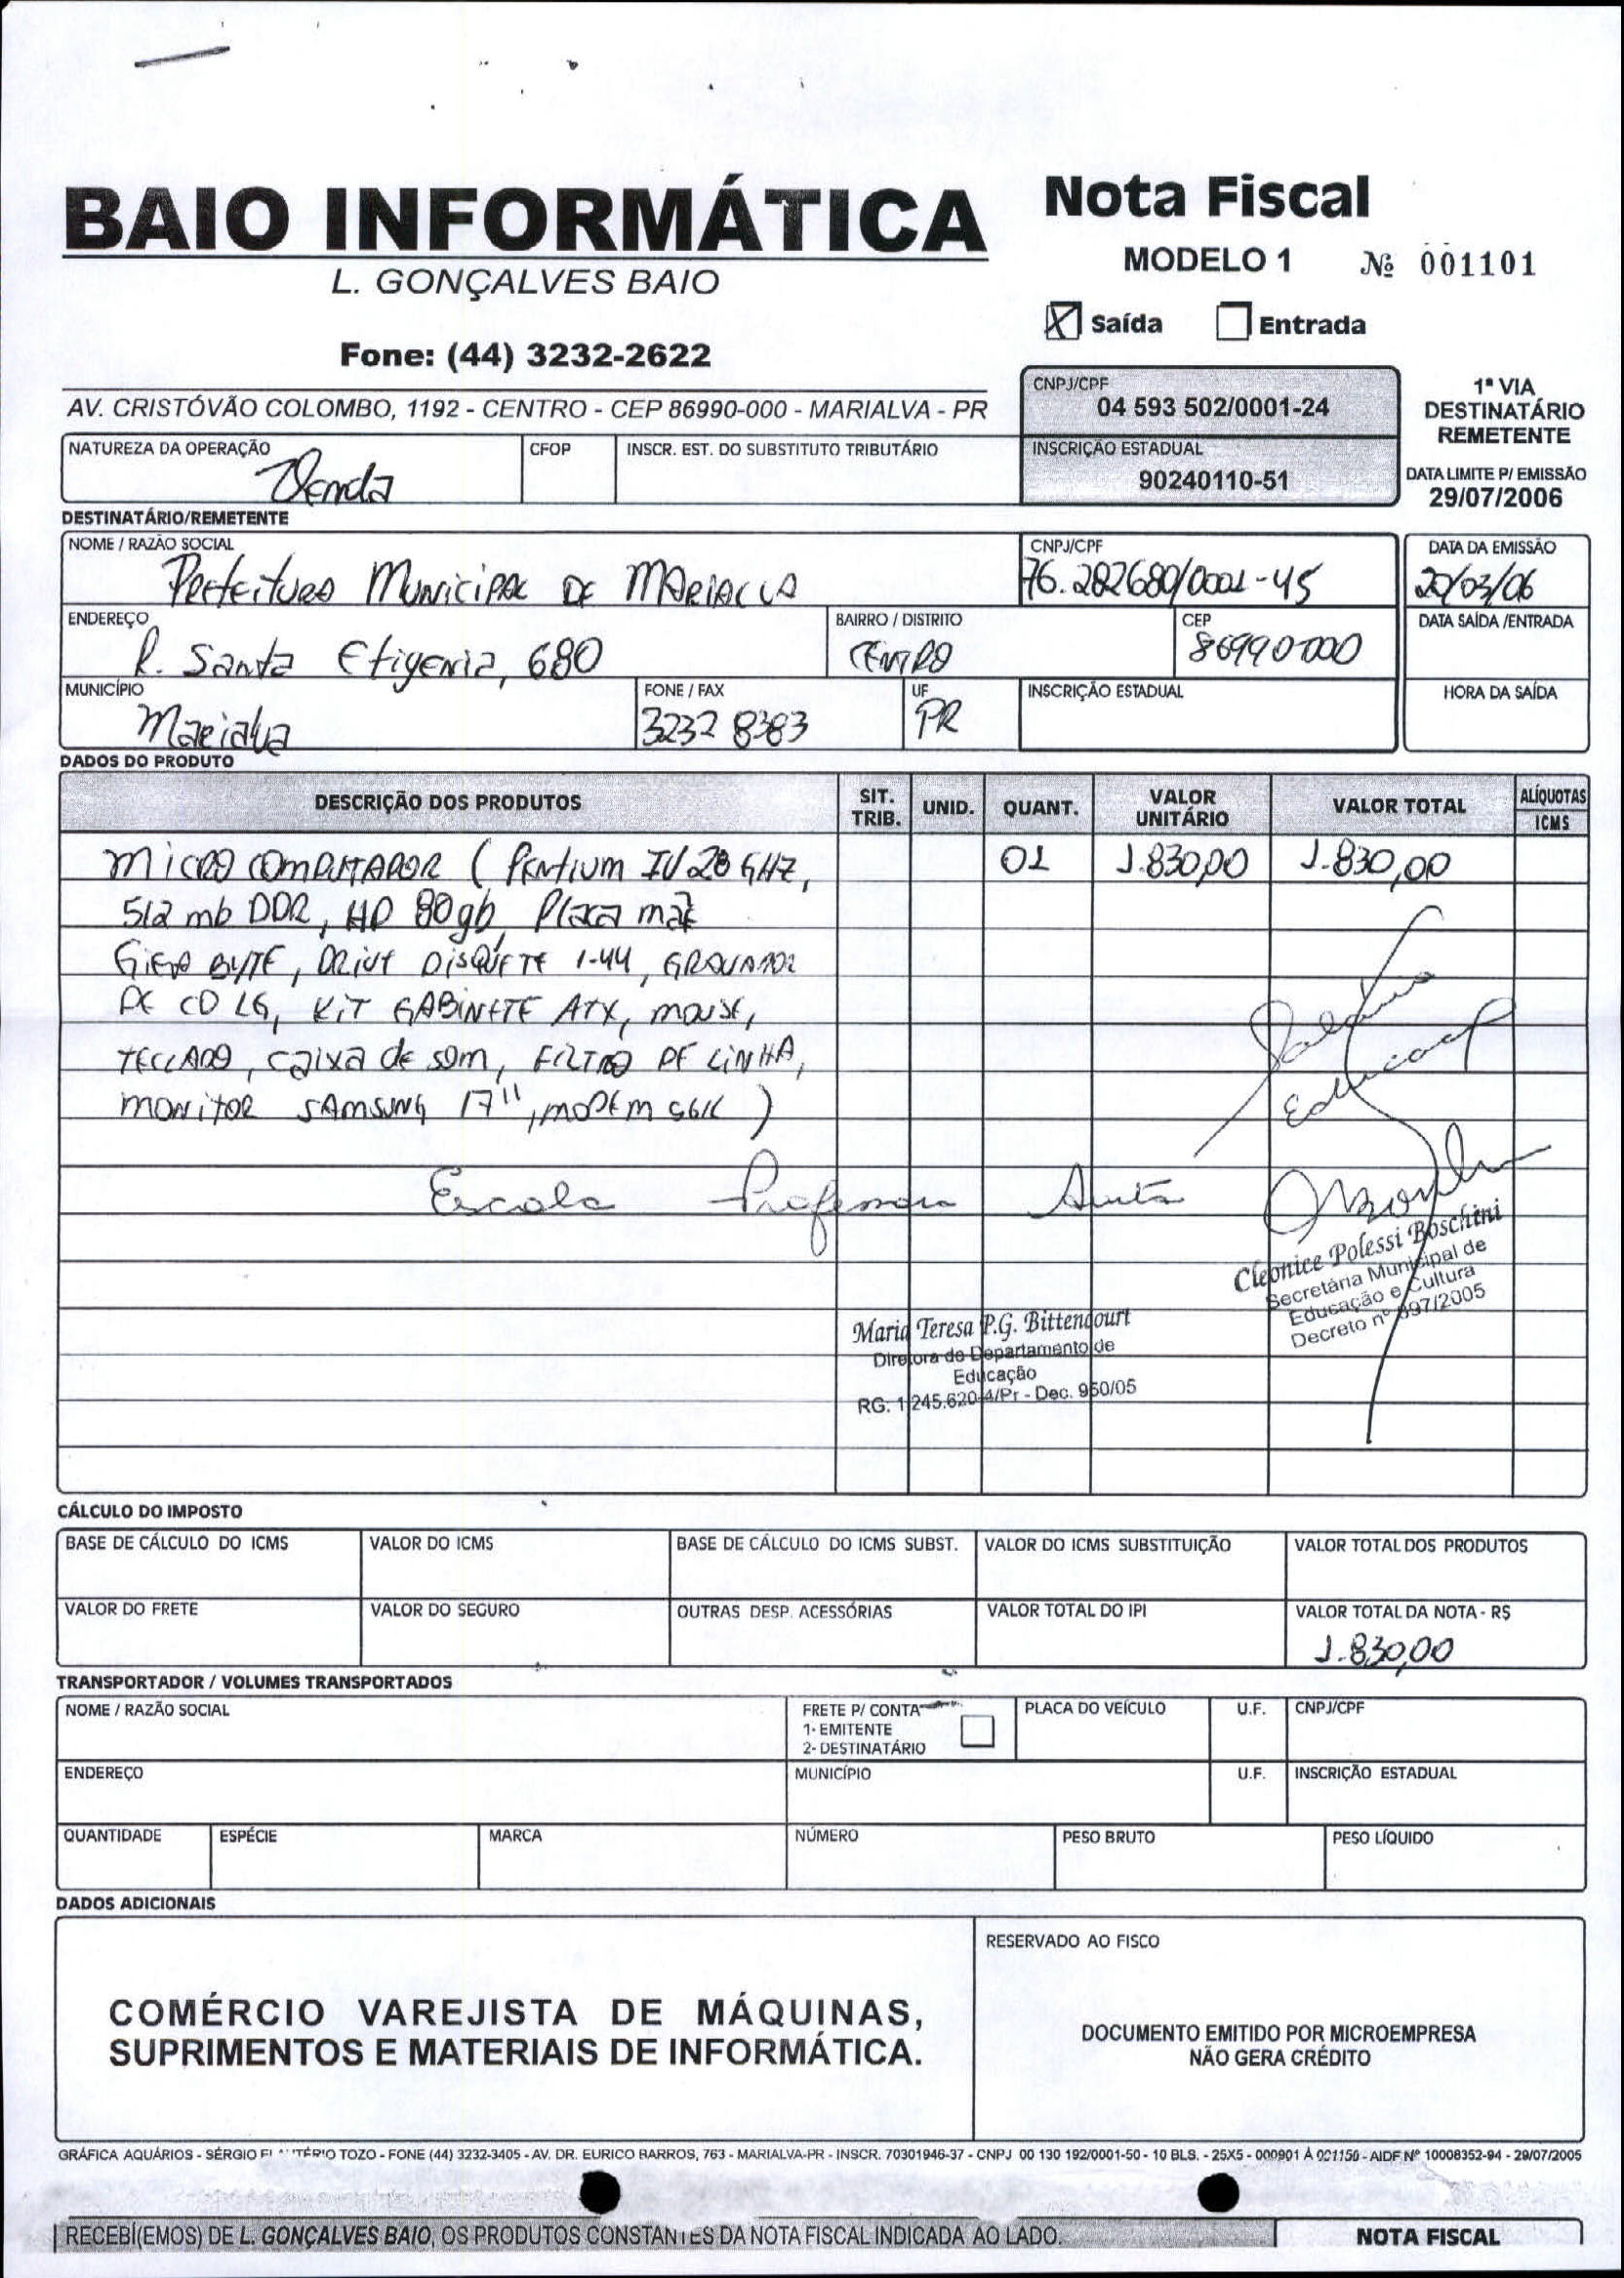 BAIO INFORMÁTICA
L. GONÇALVES BAIO
Fone: (44) 3232-2622
AV. CRISTÓVÃO COLOMBO, 1192 - CENTRO - CEP 86990-000 - MARIALVA - PR
Nota Fiscal
MODELO 1 Nº 001101
X Saída Entrada
CNPJ/CPF
04 593 502/0001-24
INSCRIÇÃO ESTADUAL
90240110-51
1ª VIA
DESTINATÁRIO
REMETENTE
DATA LIMITE P/ EMISSÃO
29/07/2006
NATUREZA DA OPERAÇÃO CFOP INSCR. EST. DO SUBSTITUTO TRIBUTÁRIO
Venda
DESTINATÁRIO/REMETENTE
NOME / RAZÃO SOCIAL CNPJ/CPF DATA DA EMISSÃO
Prefeitura Municipal DE MARIALVA 76.282680/0001-45 20/03/06
ENDEREÇO BAIRRO / DISTRITO CEP DATA SAÍDA /ENTRADA
R. Santa Efigenia, 680 CENTRO 86990000
MUNICÍPIO FONE / FAX UF INSCRIÇÃO ESTADUAL HORA DA SAÍDA
Marialva 3232 8383 PR
DADOS DO PRODUTO
DESCRIÇÃO DOS PRODUTOS SIT. TRIB. UNID. QUANT. VALOR UNITÁRIO VALOR TOTAL ALÍQUOTAS ICMS
MICRO COMPUTADOR ( PENtium IV 28 GHZ, 01 1.830,00 1.830,00
512 mb DDR, HD 80gb, Placa mãe
GIGA BYTE, DRIVE DISQUETE 1.44, GRAVADOR
DE CD LG, KIT GABINETE ATX, MOUSE,
TECLADO, caixa de som, FILTRO DE LINHA,
MONITOR SAMSUNG 17", MODEM 56K )
Educação
Escola Professora Anita
Cleonice Polessi Boschini
Secretária Municipal de
Educação e Cultura
Decreto nº 897/2005
Maria Teresa P.G. Bittencourt
Diretora do Departamento de
Educação
RG: 1.245.620-4/Pr - Dec. 950/05
CÁLCULO DO IMPOSTO
BASE DE CÁLCULO DO ICMS VALOR DO ICMS BASE DE CÁLCULO DO ICMS SUBST. VALOR DO ICMS SUBSTITUIÇÃO VALOR TOTAL DOS PRODUTOS
VALOR DO FRETE VALOR DO SEGURO OUTRAS DESP. ACESSÓRIAS VALOR TOTAL DO IPI VALOR TOTAL DA NOTA - R$
1.830,00
TRANSPORTADOR / VOLUMES TRANSPORTADOS
NOME / RAZÃO SOCIAL FRETE P/ CONTA PLACA DO VEÍCULO U.F. CNPJ/CPF
1- EMITENTE
2- DESTINATÁRIO
ENDEREÇO MUNICÍPIO U.F. INSCRIÇÃO ESTADUAL
QUANTIDADE ESPÉCIE MARCA NÚMERO PESO BRUTO PESO LÍQUIDO
DADOS ADICIONAIS
COMÉRCIO VAREJISTA DE MÁQUINAS,
SUPRIMENTOS E MATERIAIS DE INFORMÁTICA.
RESERVADO AO FISCO
DOCUMENTO EMITIDO POR MICROEMPRESA
NÃO GERA CRÉDITO
GRÁFICA AQUÁRIOS - SÉRGIO TOZO - FONE (44) 3232-3405 - AV. DR. EURICO BARROS, 763 - MARIALVA-PR - INSCR. 70301946-37 - CNPJ 00 130 192/0001-50 - 10 BLS. - 25X5 - 000901 À 001150 - AIDF Nº 10008352-94 - 29/07/2005
RECEBI(EMOS) DE L. GONÇALVES BAIO, OS PRODUTOS CONSTANTES DA NOTA FISCAL INDICADA AO LADO.
NOTA FISCAL